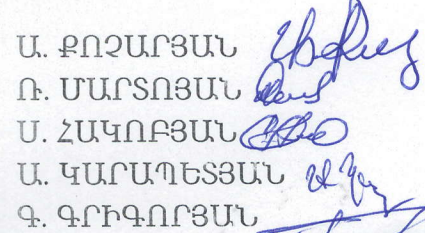 Ա. ՔՈՉԱՐՅԱՆ
Ռ. ՄԱՐՏՈՅԱՆ
Ս. ՀԱԿՈԲՅԱՆ
Ա. ԿԱՐԱՊԵՏՅԱՆ
Գ. ԳՐԻԳՈՐՅԱՆ